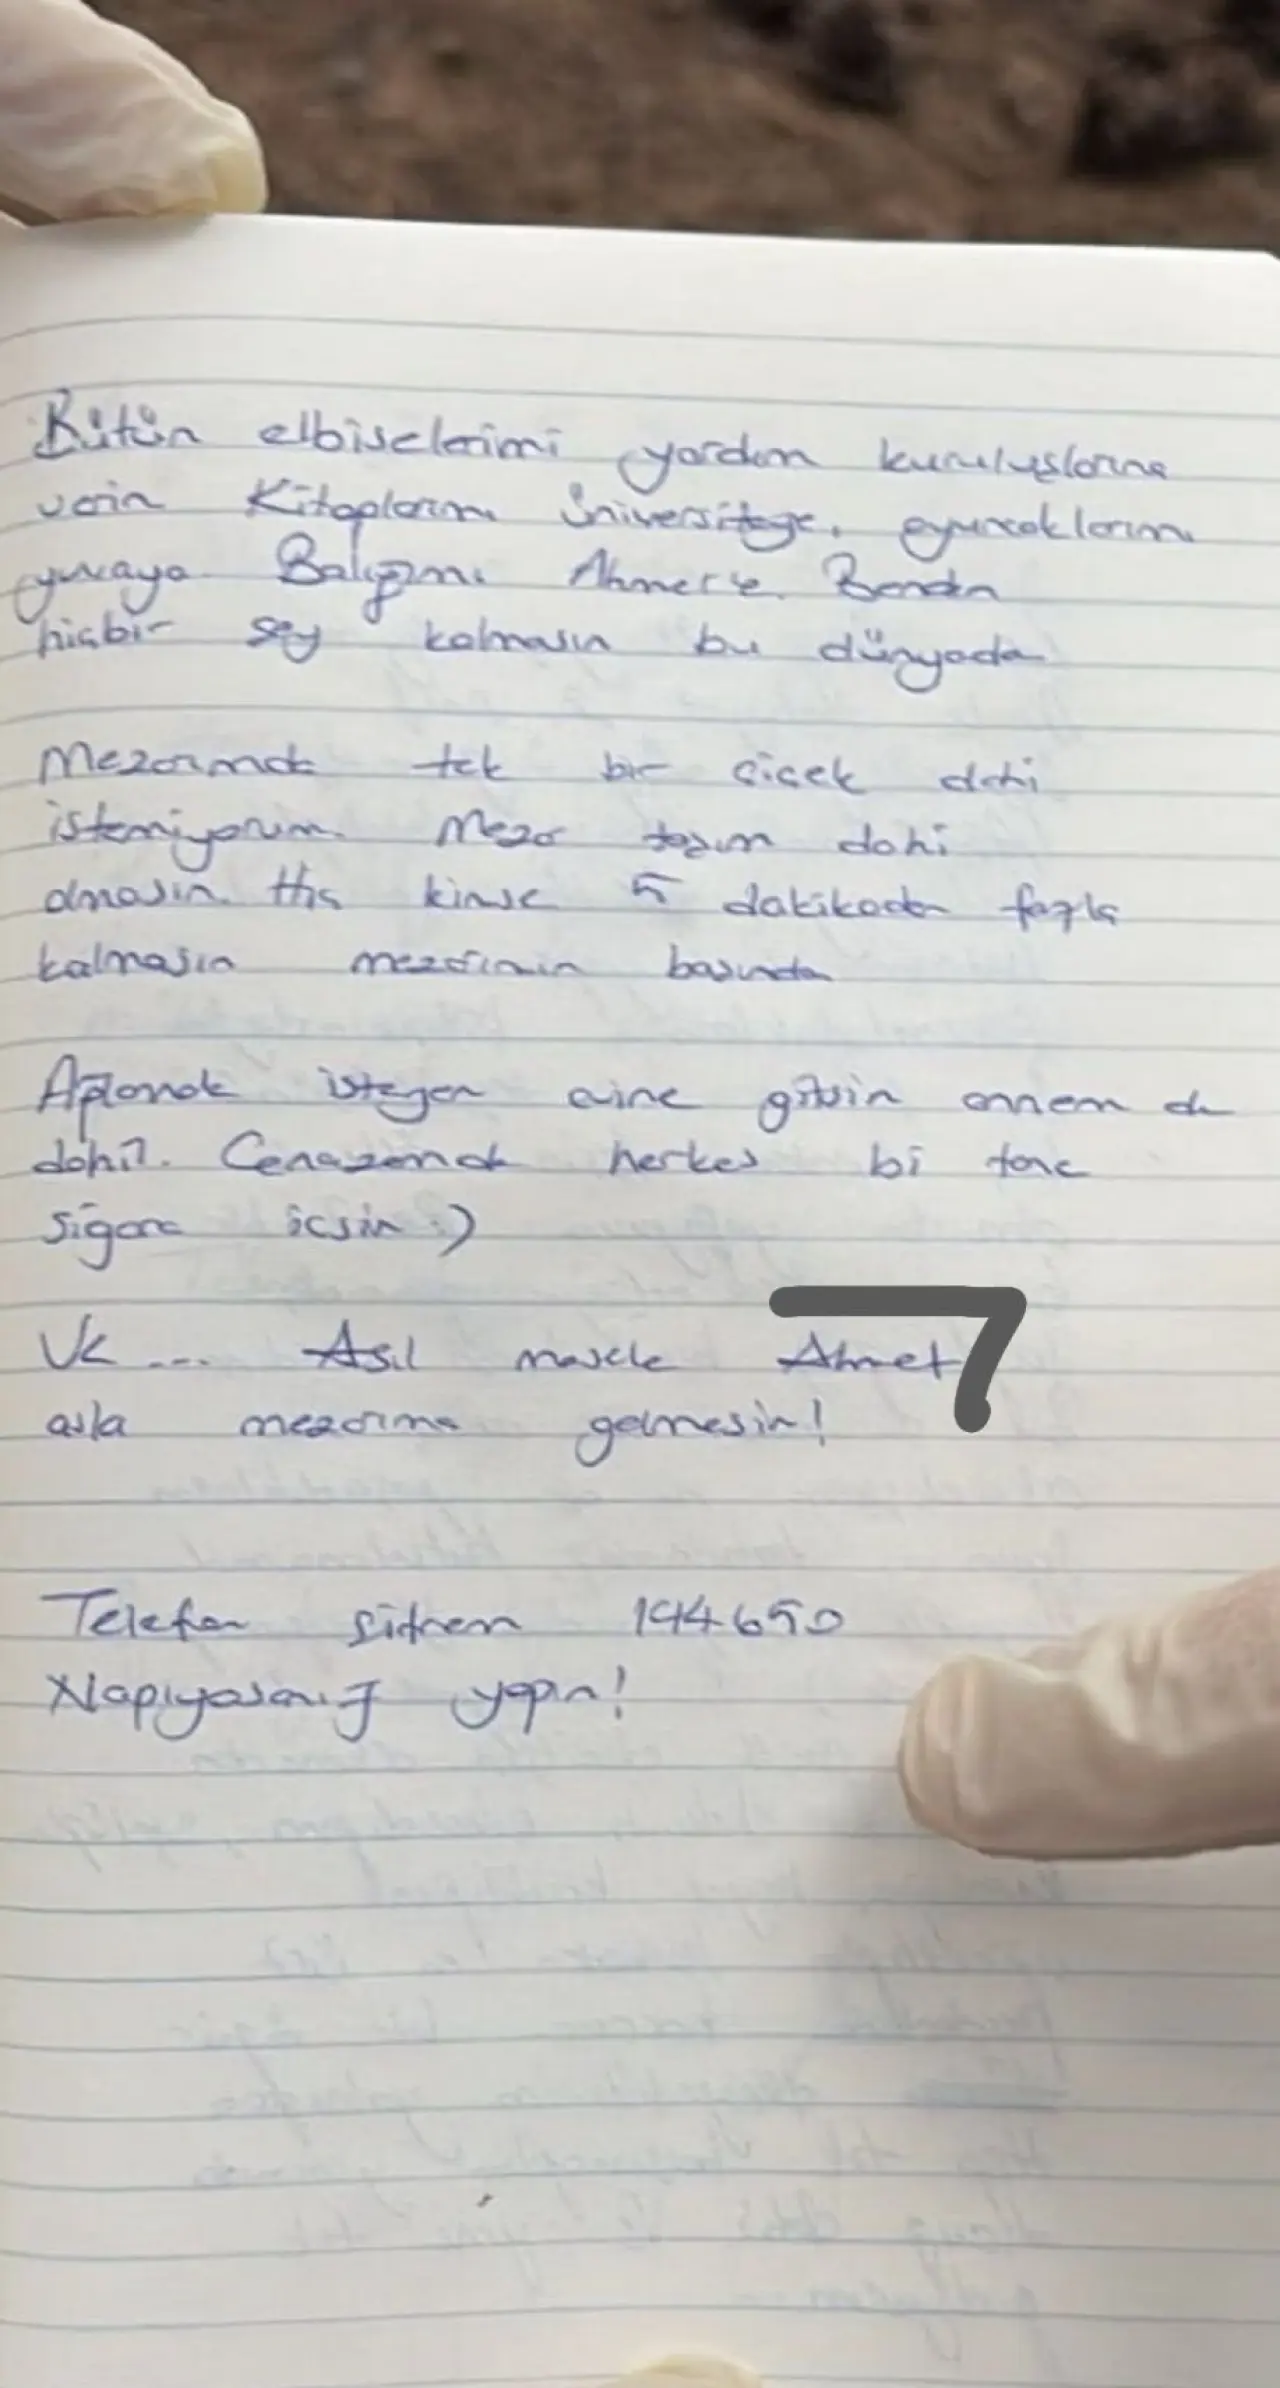 Bütün elbiselerimi yardım kuruluşlarına
verin Kitaplarımı Üniversiteye, oyuncaklarımı
yuvaya Balığımı Ahmet'e. Benden
hiçbir şey kalmasın bu dünyada
Mezarımda tek bir çiçek dahi
istemiyorum. Mezar taşım dahi
olmasın. Hiç kimse 5 dakikadan fazla
kalmasın mezarımın başında
Ağlamak isteyen evine gitsin annem de
dahil. Cenazemde herkes bi tane
sigara içsin :)
Ve... Asıl mesele Ahmet
asla mezarıma gelmesin!
Telefon şifrem 194650
Napıyosanız yapın!